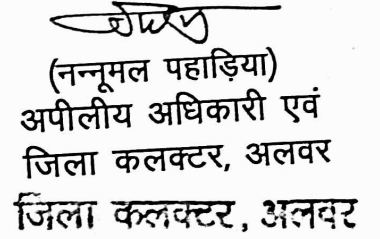 (नन्नूमल पहाड़िया)
अपीलीय अधिकारी एवं
जिला कलक्टर, अलवर
जिला कलक्टर, अलवर